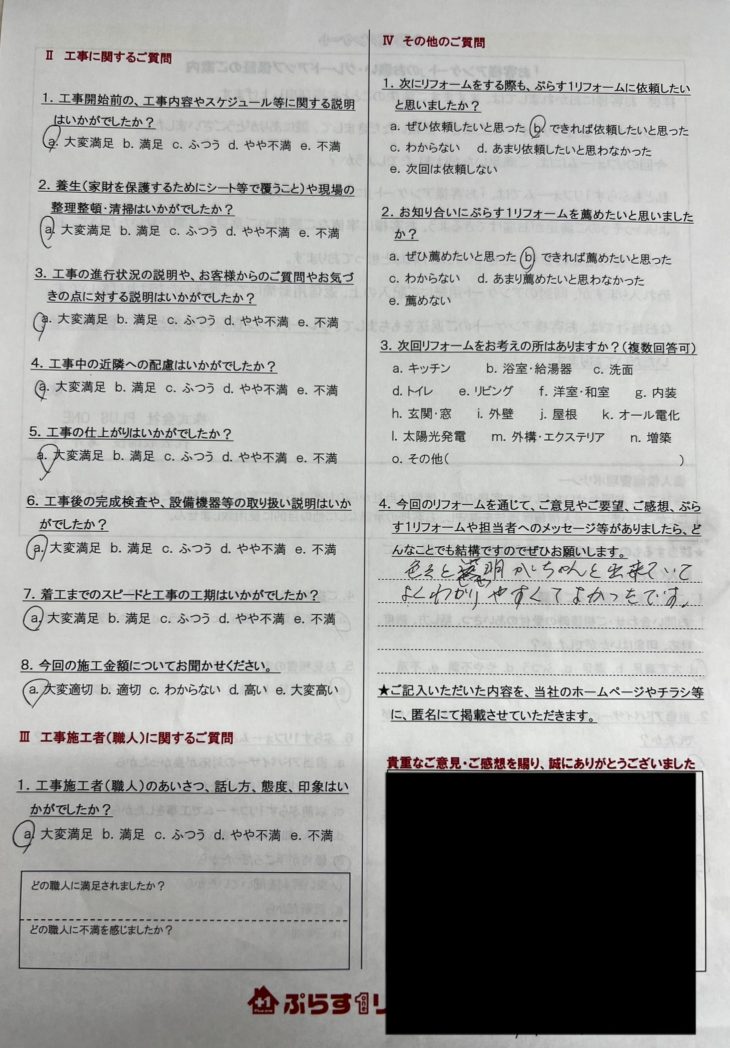 Ⅱ 工事に関するご質問
1. 工事開始前の、工事内容やスケジュール等に関する説明
はいかがでしたか?
a. 大変満足 b. 満足 c. ふつう d. やや不満 e. 不満
2. 養生(家財を保護するためにシート等で覆うこと)や現場の
整理整頓・清掃はいかがでしたか?
a. 大変満足 b. 満足 c. ふつう d. やや不満 e. 不満
3. 工事の進行状況の説明や、お客様からのご質問やお気づ
きの点に対する説明はいかがでしたか?
a. 大変満足 b. 満足 c. ふつう d. やや不満 e. 不満
4. 工事中の近隣への配慮はいかがでしたか?
a. 大変満足 b. 満足 c. ふつう d. やや不満 e. 不満
5. 工事の仕上がりはいかがでしたか?
a. 大変満足 b. 満足 c. ふつう d. やや不満 e. 不満
6. 工事後の完成検査や、設備機器等の取り扱い説明はいか
がでしたか?
a. 大変満足 b. 満足 c. ふつう d. やや不満 e. 不満
7. 着工までのスピードと工事の工期はいかがでしたか?
a. 大変満足 b. 満足 c. ふつう d. やや不満 e. 不満
8. 今回の施工金額についてお聞かせください。
a. 大変適切 b. 適切 c. わからない d. 高い e. 大変高い
Ⅲ 工事施工者(職人)に関するご質問
1. 工事施工者(職人)のあいさつ、話し方、態度、印象はい
かがでしたか?
a. 大変満足 b. 満足 c. ふつう d. やや不満 e. 不満
どの職人に満足されましたか?
どの職人に不満を感じましたか?
Ⅳ その他のご質問
1. 次にリフォームをする際も、ぷらす1リフォームに依頼したい
と思いましたか?
a. ぜひ依頼したいと思った b. できれば依頼したいと思った
c. わからない d. あまり依頼したいと思わなかった
e. 次回は依頼しない
2. お知り合いにぷらす1リフォームを薦めたいと思いました
か?
a. ぜひ薦めたいと思った b. できれば薦めたいと思った
c. わからない d. あまり薦めたいと思わなかった
e. 薦めない
3. 次回リフォームをお考えの所はありますか?(複数回答可)
a. キッチン b. 浴室・給湯器 c. 洗面
d.トイレ e. リビング f. 洋室・和室 g. 内装
h. 玄関・窓 i. 外壁 j. 屋根 k. オール電化
l. 太陽光発電 m. 外構・エクステリア n. 増築
o. その他( )
4. 今回のリフォームを通じて、ご意見やご要望、ご感想、ぷら
す1リフォームや担当者へのメッセージ等がありましたら、ど
んなことでも結構ですのでぜひお願いします。
色々と説明がちゃんと出来ていて
よくわかりやすくてよかったです。
★ご記入いただいた内容を、当社のホームページやチラシ等
に、匿名にて掲載させていただきます。
貴重なご意見・ご感想を賜り、誠にありがとうございました
ぷらす1リ